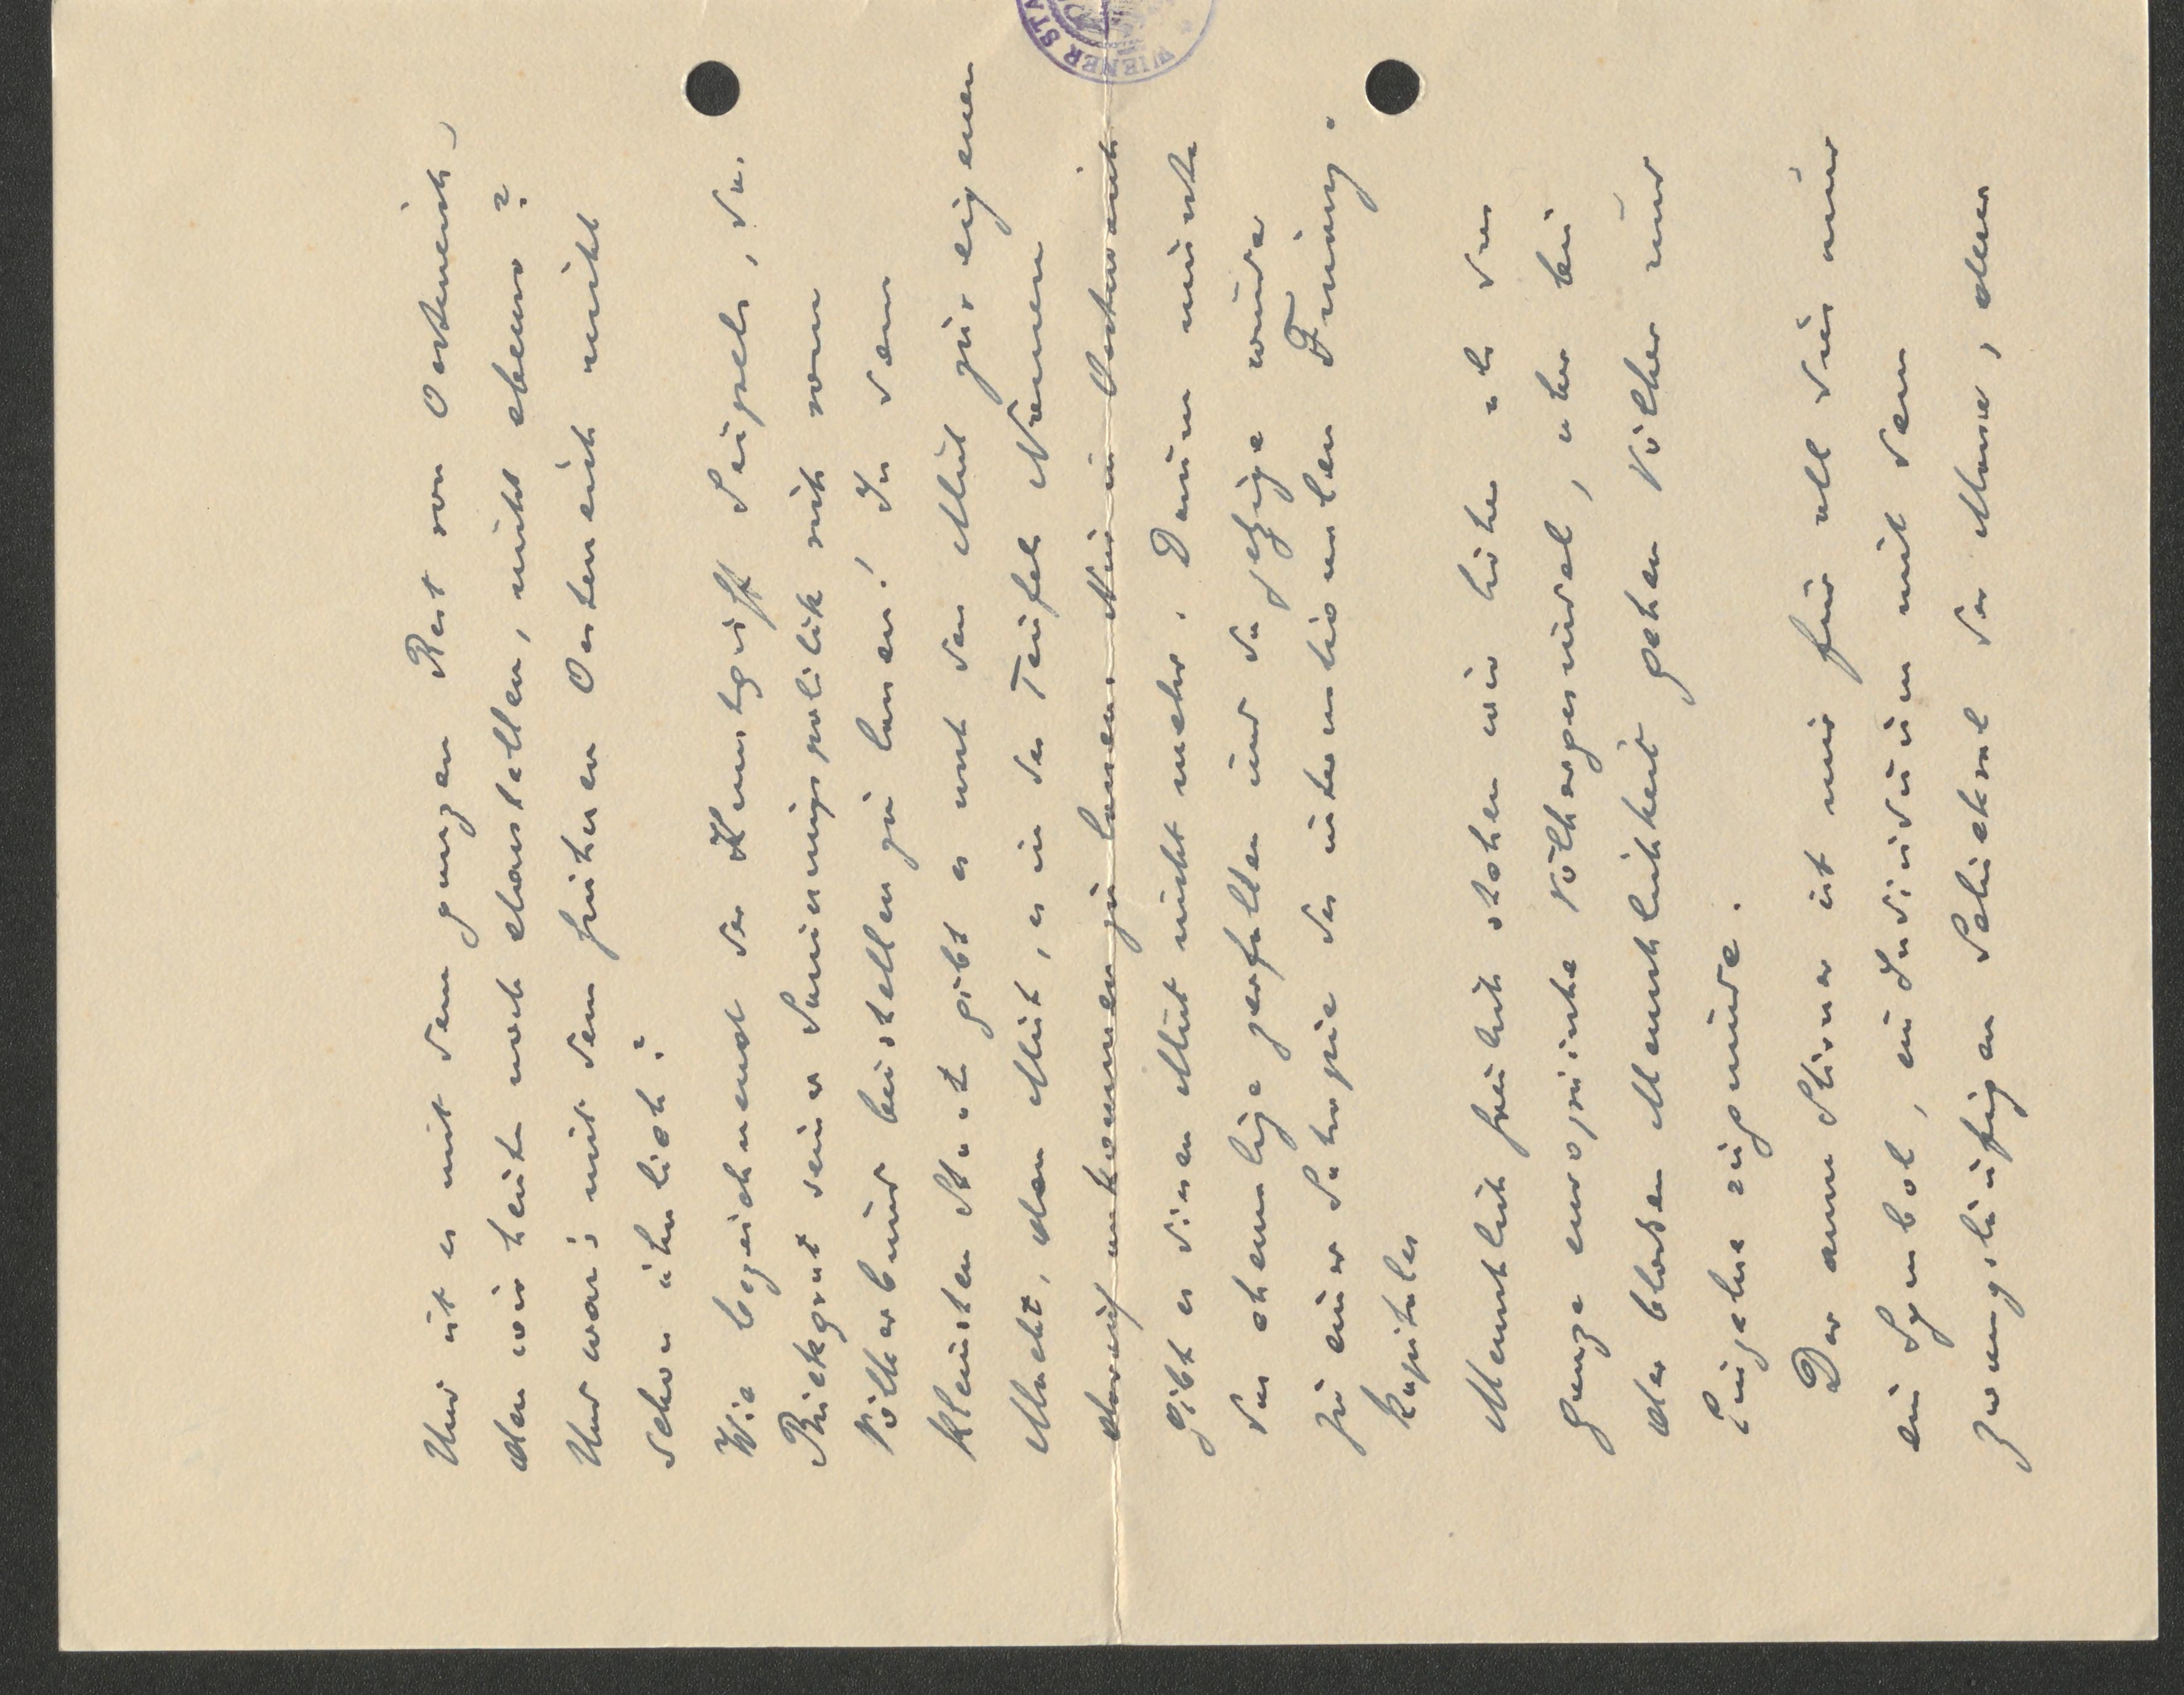 Und ist es mit dem ganzen Rest von Österreich,
den wir heute noch darstellen, nicht ebenso?
Und war's mit dem früheren Österreich nicht
schon ähnlich?
Wie bezeichnend der Kunstgriff Seipels, das
Rückgrat seiner Sanierungspolitik sich vom
Völkerbund beistellen zu lassen! In dem
kleinsten Staat gibt es noch den Mut zur eigenen
Macht, den Mut, es in des Teufels Namen
darauf ankommen zu lassen. Nur in Österreich
gibt es diesen Mut nicht mehr. Darum musste
das ehemalige zerfallen und das jetzige wurde
zu einer Satrapie des internationalen Finanz-
Kapitales
Menschlich freilich stehen wir höher als das
ganze europäische Völkergesindel, aber bei
der blossen Menschlichkeit gehen Völker und
Einzelne zugrunde.
Der arme ist mir für all dies nur
ein Symbol, ein Individuum mit dem
zwangsläufigen Schicksal der Masse, dem
WIENER STA